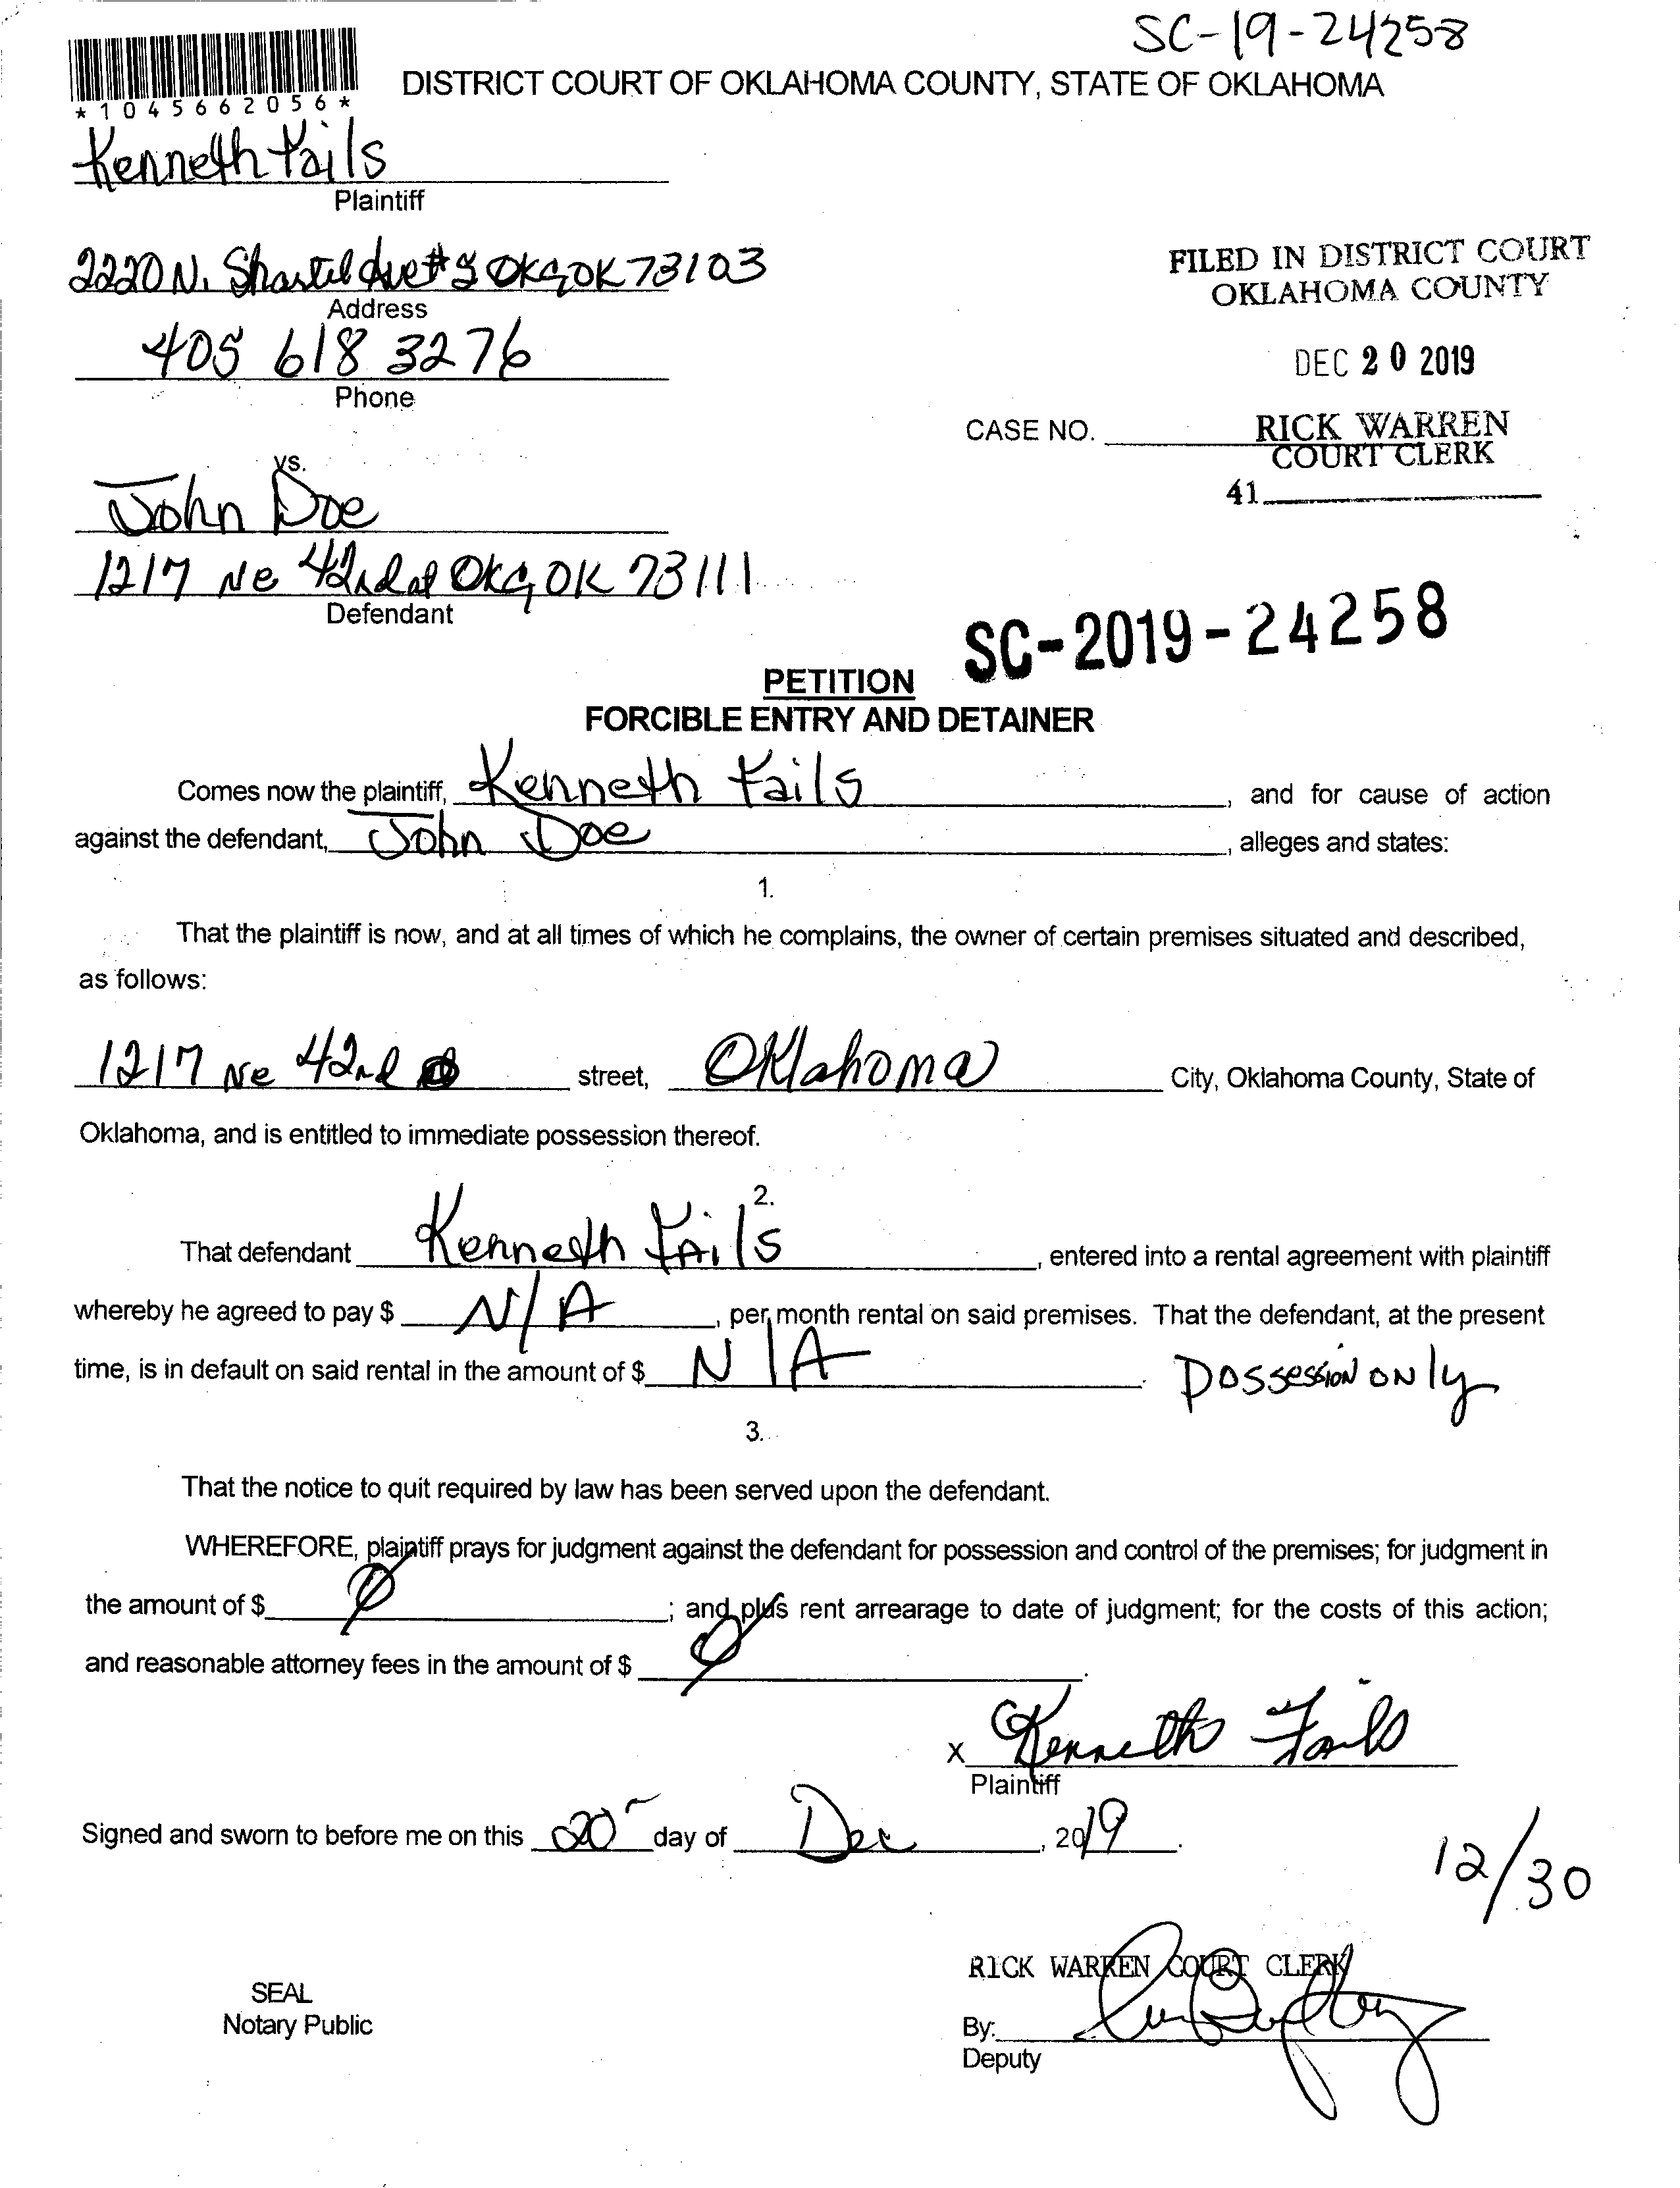 SC-19-24258
*1045662056*
DISTRICT COURT OF OKLAHOMA COUNTY, STATE OF OKLAHOMA
Kenneth Fails
Plaintiff
2220 N. Shartel Ave # OKC OK 73103
Address
405 618 3276
Phone
FILED IN DISTRICT COURT
OKLAHOMA COUNTY
DEC 20 2019
CASE NO.
RICK WARREN
COURT CLERK
41
vs.
John Doe
1217 Ne 42nd st OKC, OK 73111
Defendant
SC-2019-24258
PETITION
FORCIBLE ENTRY AND DETAINER
Comes now the plaintiff, Kenneth Fails, and for cause of action
against the defendant, John Doe, alleges and states:
1.
That the plaintiff is now, and at all times of which he complains, the owner of certain premises situated and described,
as follows:
1217 Ne 42nd street, Oklahoma City, Oklahoma County, State of
Oklahoma, and is entitled to immediate possession thereof.
2.
That defendant Kenneth Fails, entered into a rental agreement with plaintiff
whereby he agreed to pay $ N/A, per month rental on said premises. That the defendant, at the present
time, is in default on said rental in the amount of $ N/A. Possession only
3.
That the notice to quit required by law has been served upon the defendant.
WHEREFORE, plaintiff prays for judgment against the defendant for possession and control of the premises; for judgment in
the amount of $ Ø; and plus rent arrearage to date of judgment; for the costs of this action;
and reasonable attorney fees in the amount of $ Ø.
X Kenneth Fails
Plaintiff
Signed and sworn to before me on this 20 day of Dec, 2019.
12/30
RICK WARREN COURT CLERK
SEAL
Notary Public
By:
Deputy